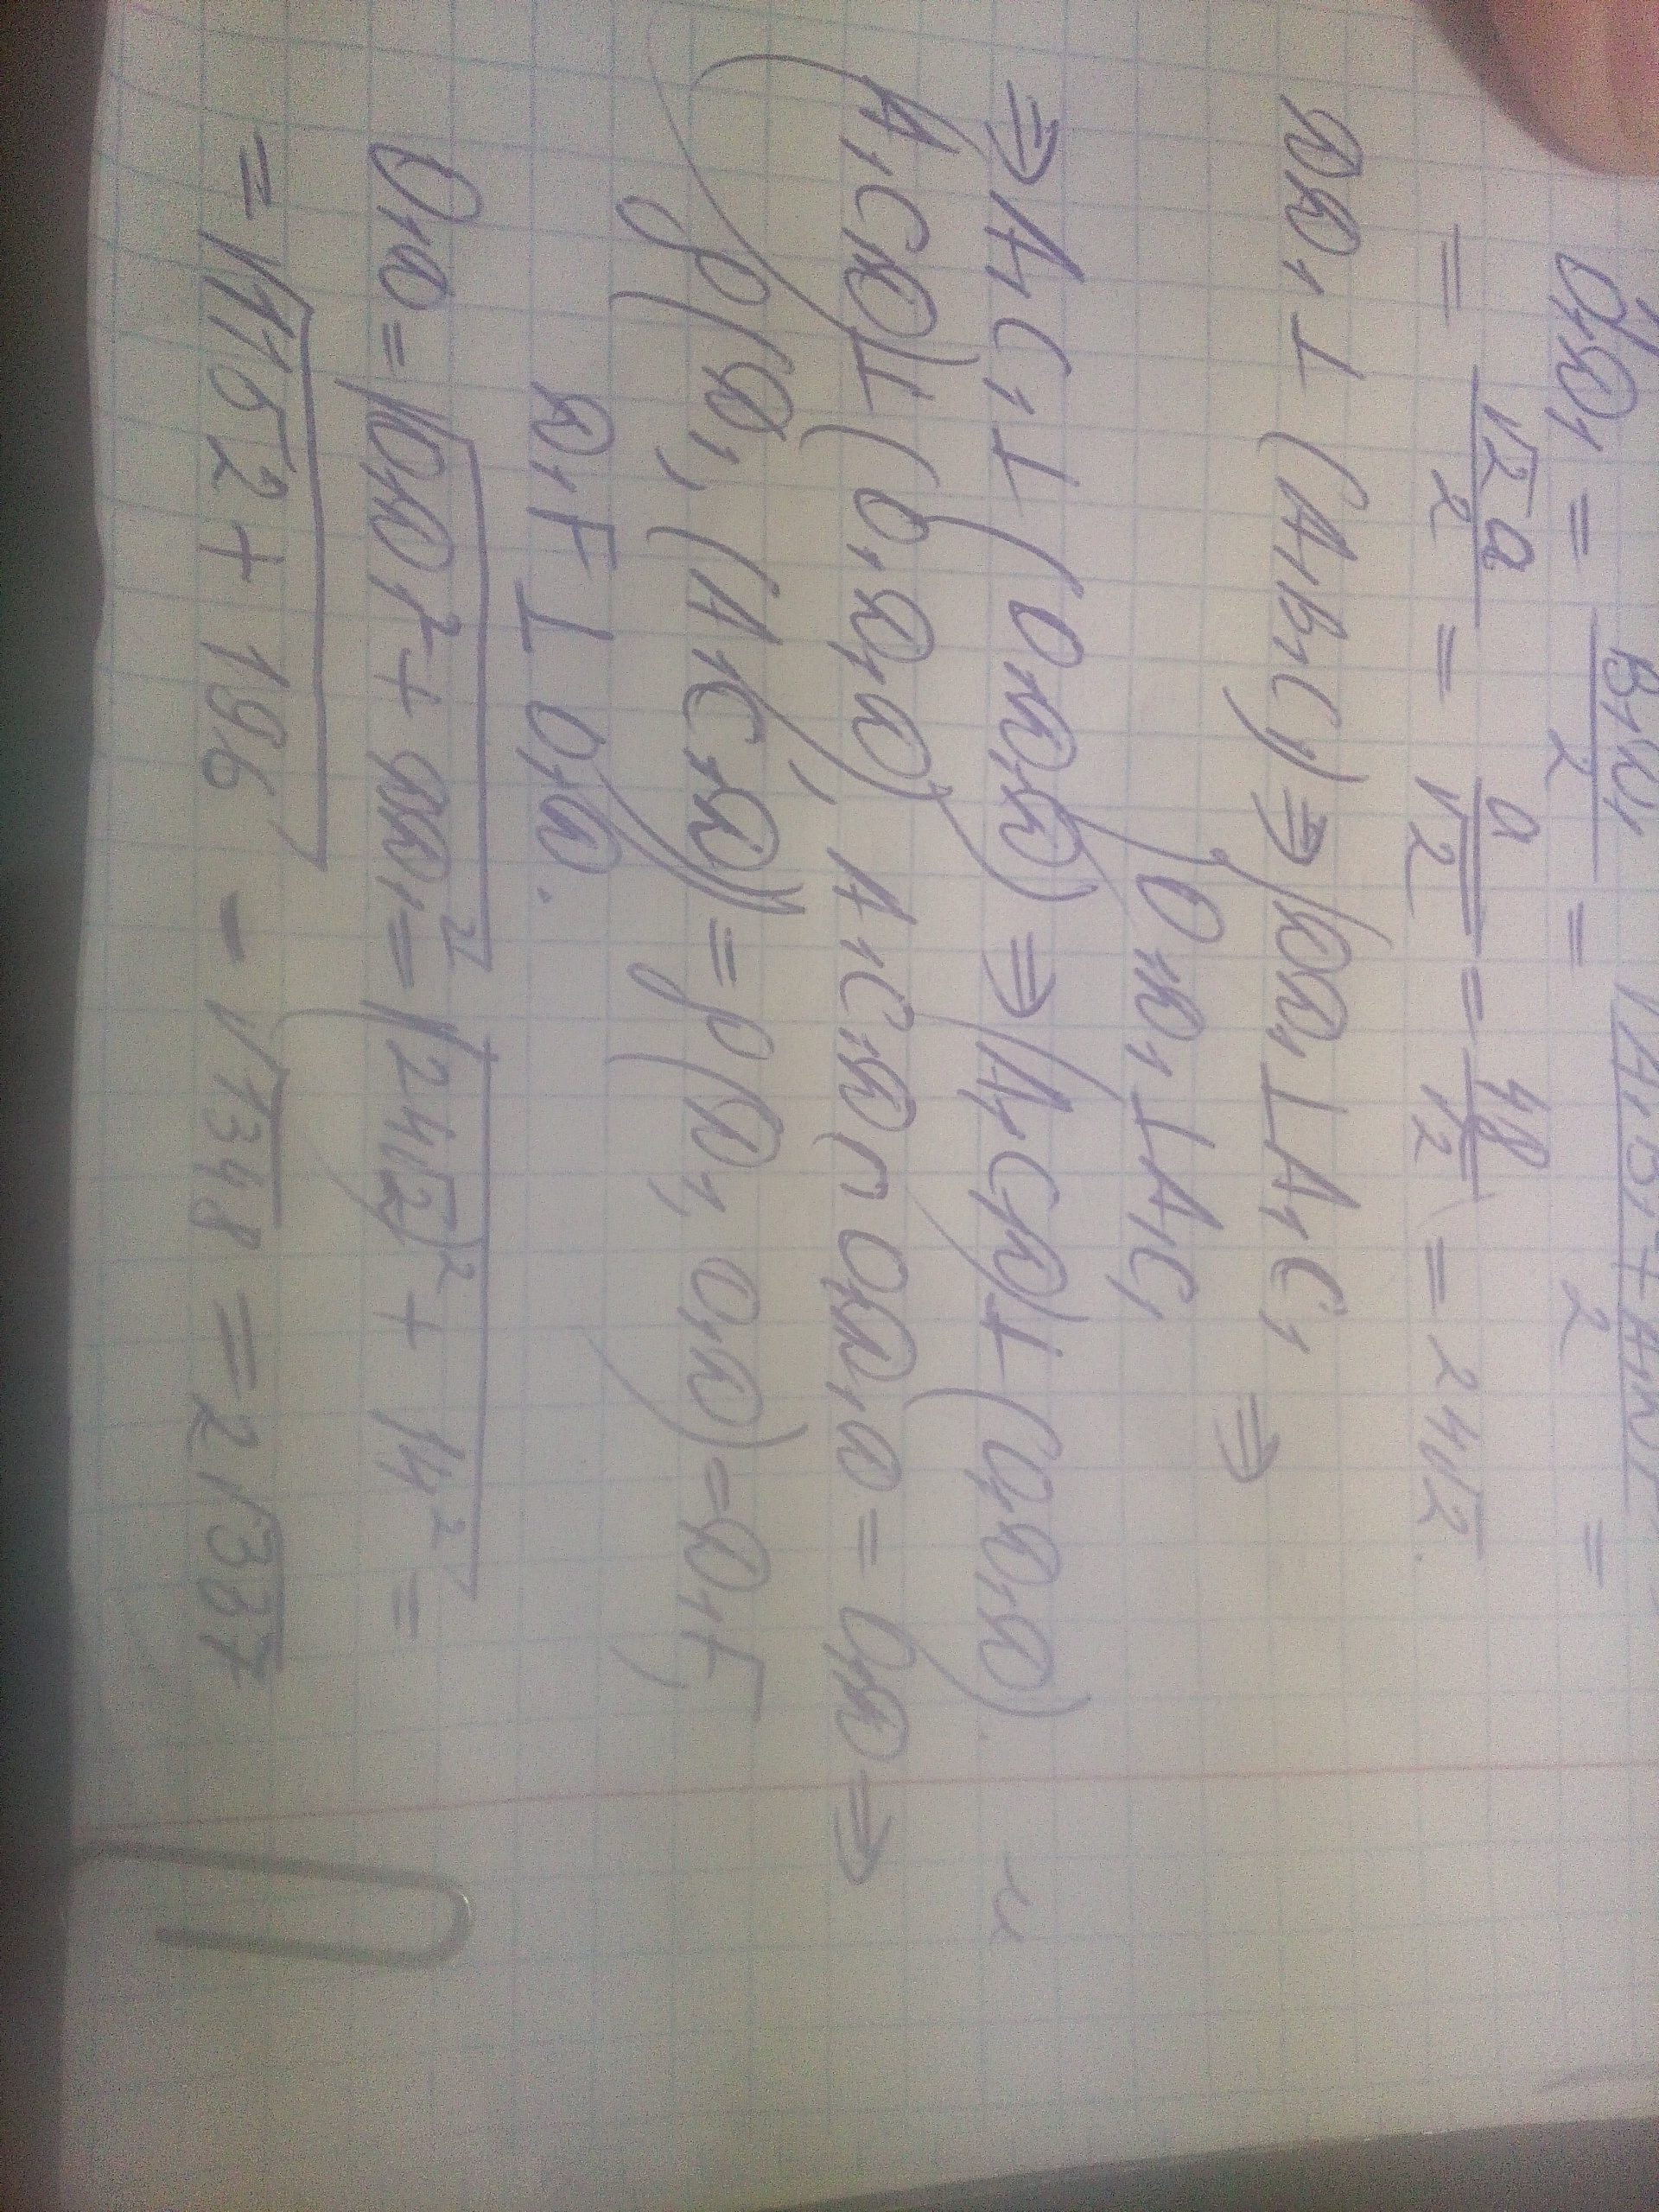 O₁D₁ = B₁D₁/2 = √A₁B₁² + A₁D₁²/2 =
= √2a/2 = a/√2 = 48/√2 = 24√2.
DD₁ ⊥ (A₁B₁C₁) ⇒ DD₁ ⊥ A₁C₁ ⇒
O₁D₁ ⊥ A₁C₁
⇒ A₁C₁ ⊥ (O₁D₁D) ⇒ (A₁C₁D) ⊥ (O₁D₁D).
(A₁C₁D) ⊥ (O₁D₁D), A₁C₁D ∩ O₁D₁D = O₁D ⇒
ρ(D₁, (A₁C₁D)) = ρ(D₁, O₁D) = D₁F,
D₁F ⊥ O₁D.
O₁D = √O₁D₁² + DD₁² = √(24√2)² + 14² =
= √1152 + 196 = √1348 = 2√337